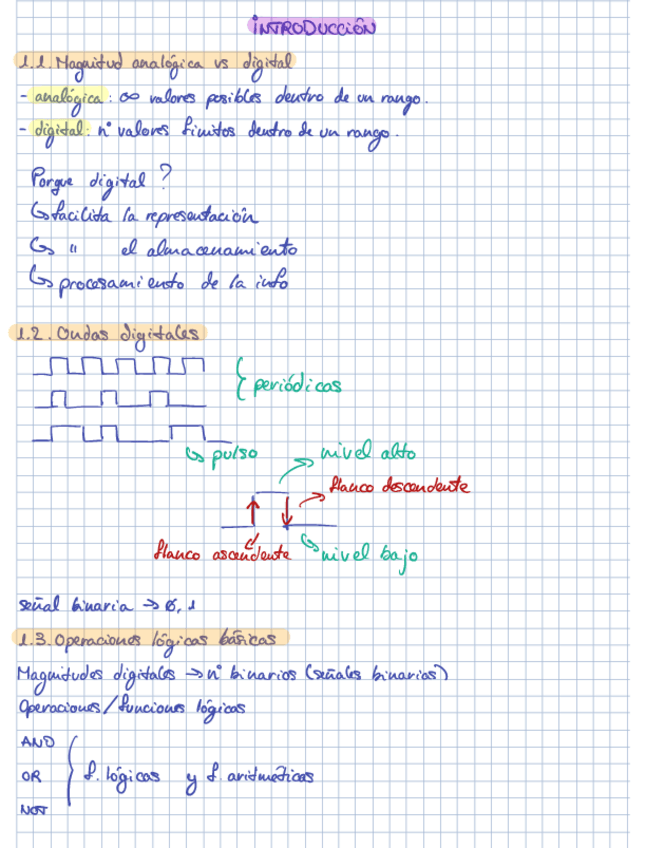 INTRODUCCIÓN
1.1. Magnitud analógica vs digital
- analógica: ∞ valores posibles dentro de un rango.
- digital: nº valores finitos dentro de un rango.
Porque digital?
↳ facilita la representación
↳ " el almacenamiento
↳ procesamiento de la info
1.2. Ondas digitales
{ periódicas
↳ pulso
nivel alto
flanco descendente
flanco ascendente
nivel bajo
señal binaria → 0, 1
1.3. Operaciones lógicas básicas
Magnitudes digitales → nº binarios (señales binarias)
Operaciones/funciones lógicas
AND
OR { f. lógicas y f. aritméticas
NOT